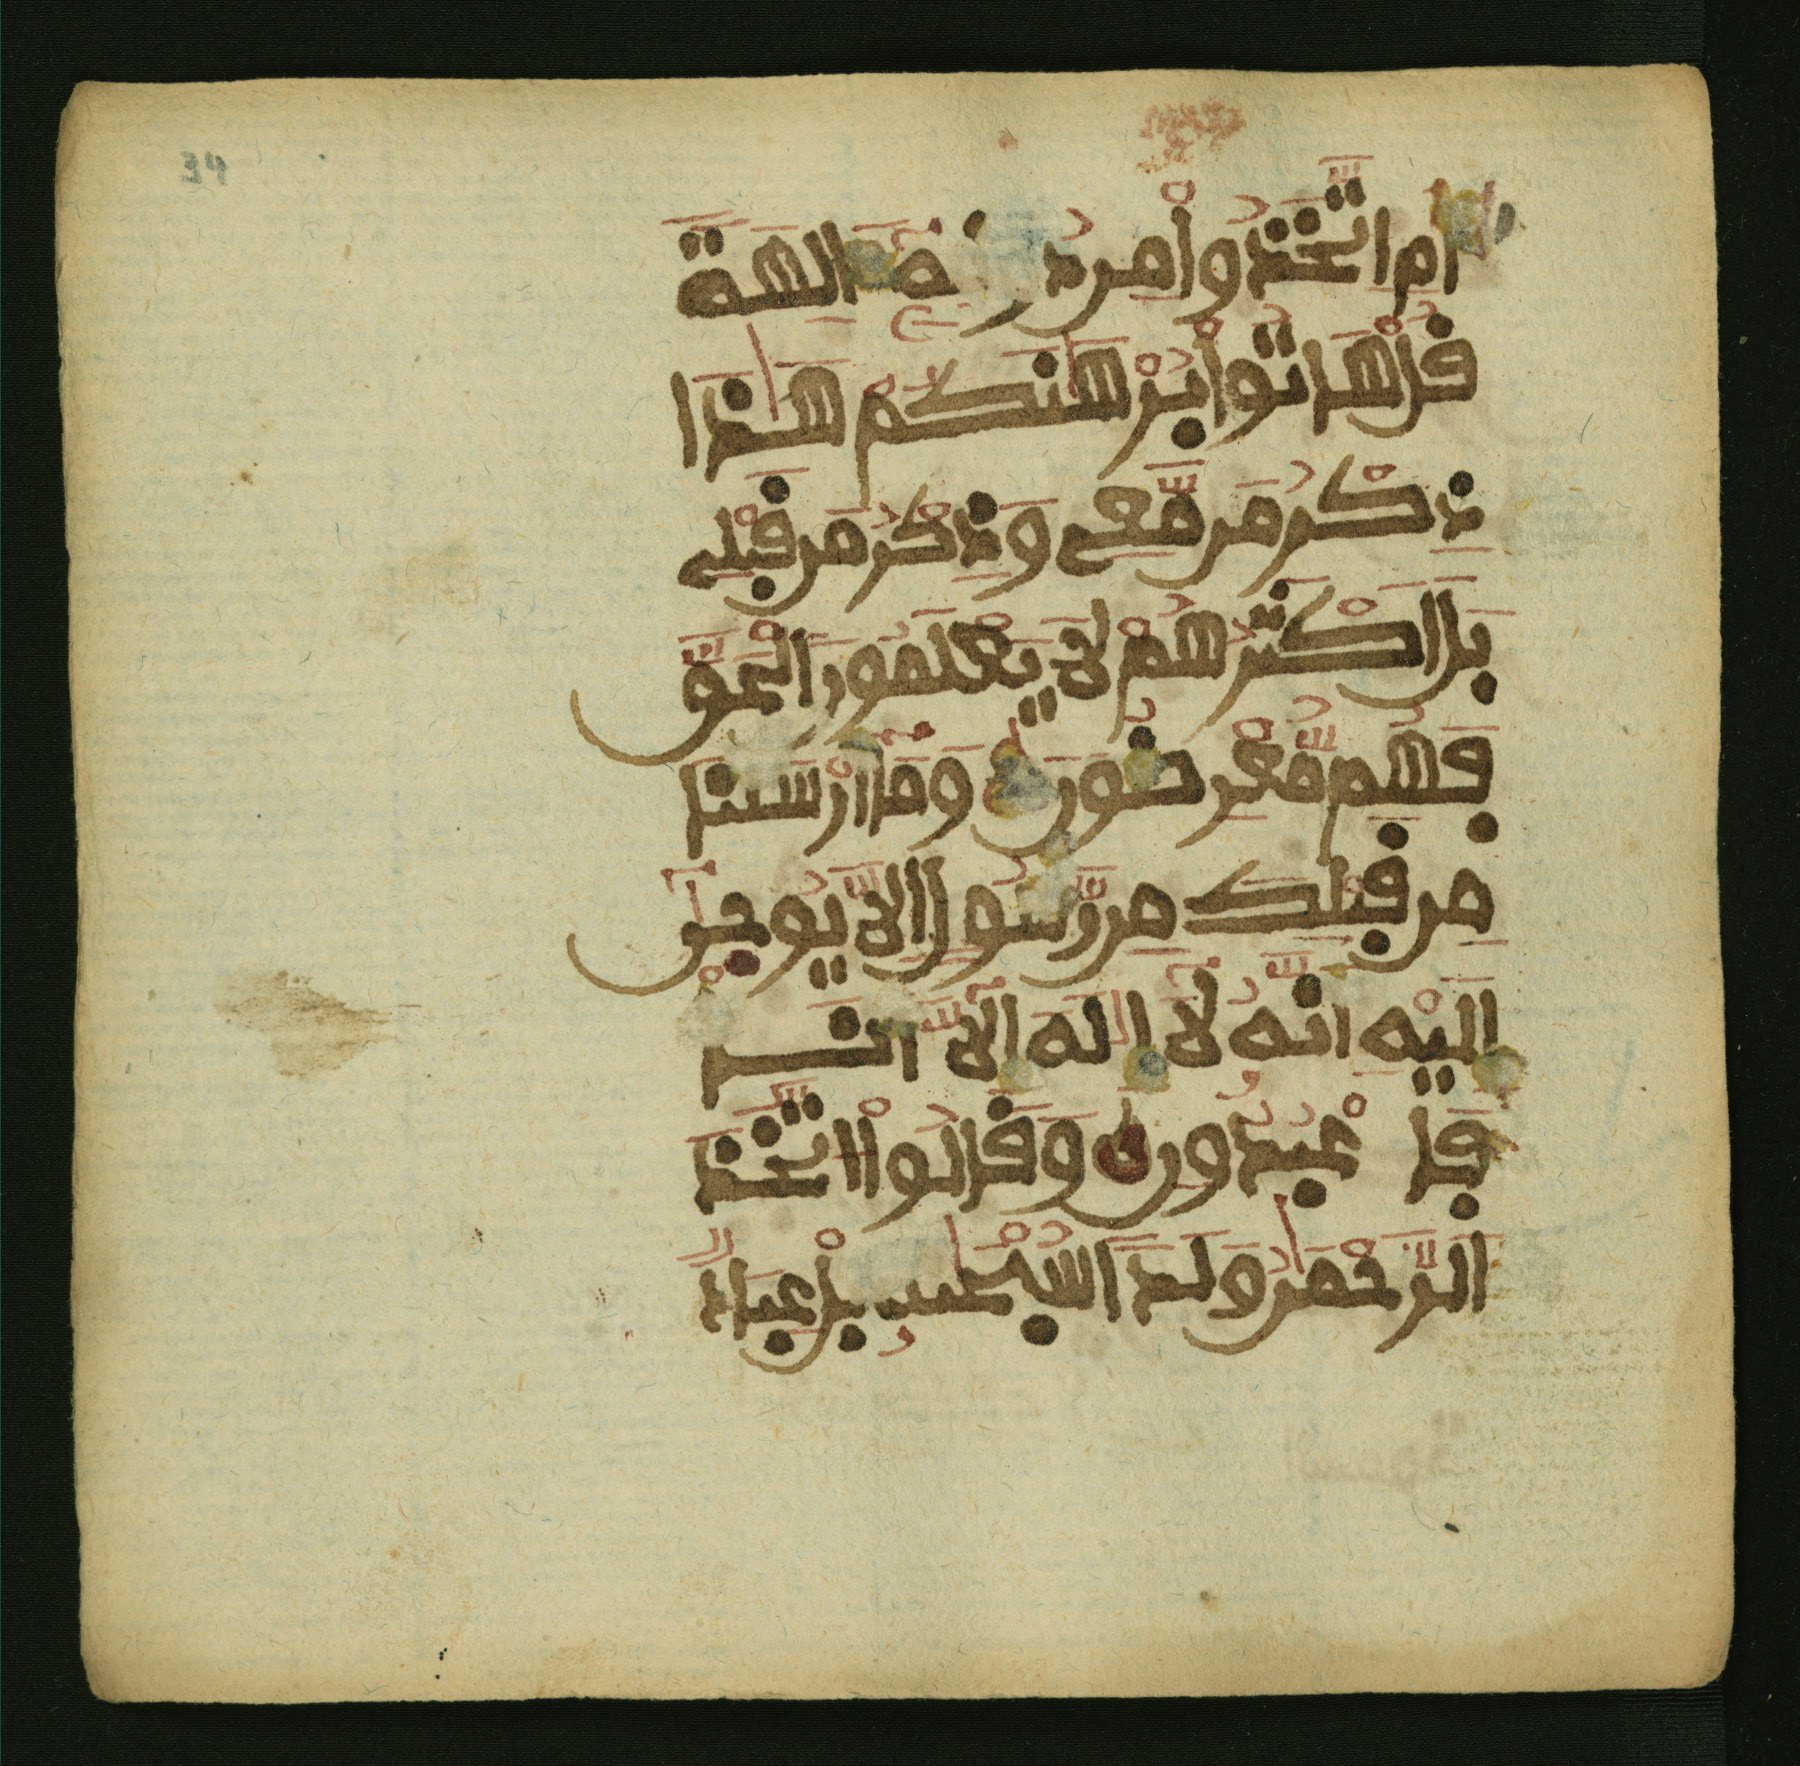 34
ام اتَّخَذُوا مِن دُونِهِ ءالِهَةً
قُلْ هَاتُوا بُرْهَٰنَكُمْ هَٰذَا
ذِكْرُ مَن مَّعِي وَذِكْرُ مَن قَبْلِي
بَلْ اَكْثَرُهُمْ لَا يَعْلَمُونَ الْحَقَّ
فَهُم مُّعْرِضُونَ وَمَا اَرْسَلْنَا
مِن قَبْلِكَ مِن رَّسُولٍ اِلَّا يُوحَىٰ
اِلَيْهِ اَنَّهُ لَا اِلَٰهَ اِلَّا اَنَا
فَاعْبُدُونِ وَقَالُوا اتَّخَذَ
الرَّحْمَٰنُ وَلَدًا سُبْحَٰنَهُ بَلْ عِبَادٌ